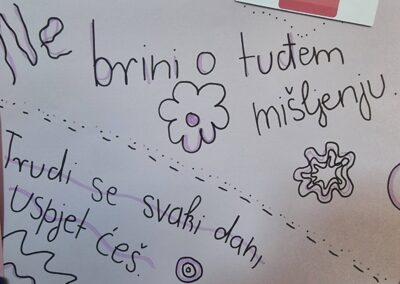 Ne brini o tuđem
mišljenju.
Trudi se svaki dan,
Uspjet ćeš.